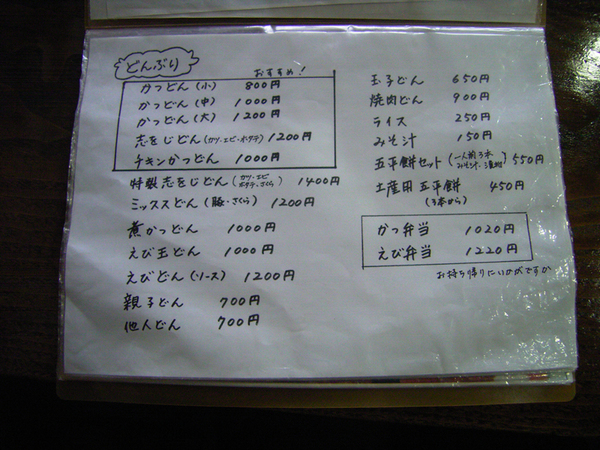 どんぶり
おすすめ!
かつどん(小) 800円
かつどん(中) 1000円
かつどん(大) 1200円
志をじどん(カツ・エビ・ホタテ) 1200円
チキンかつどん 1000円
特製志をじどん(カツ・エビ ホタテ・さくら) 1400円
ミックスどん(豚・さくら) 1200円
煮かつどん 1000円
えび玉どん 1000円
えびどん(ソース) 1200円
親子どん 700円
他人どん 700円
玉子どん 650円
焼肉どん 900円
ライス 250円
みそ汁 150円
五平餅セット(一人前3本 みそ汁・漬物) 550円
土産用五平餅 450円
(3本から)
かつ弁当 1020円
えび弁当 1220円
お持ち帰りにいかがですか